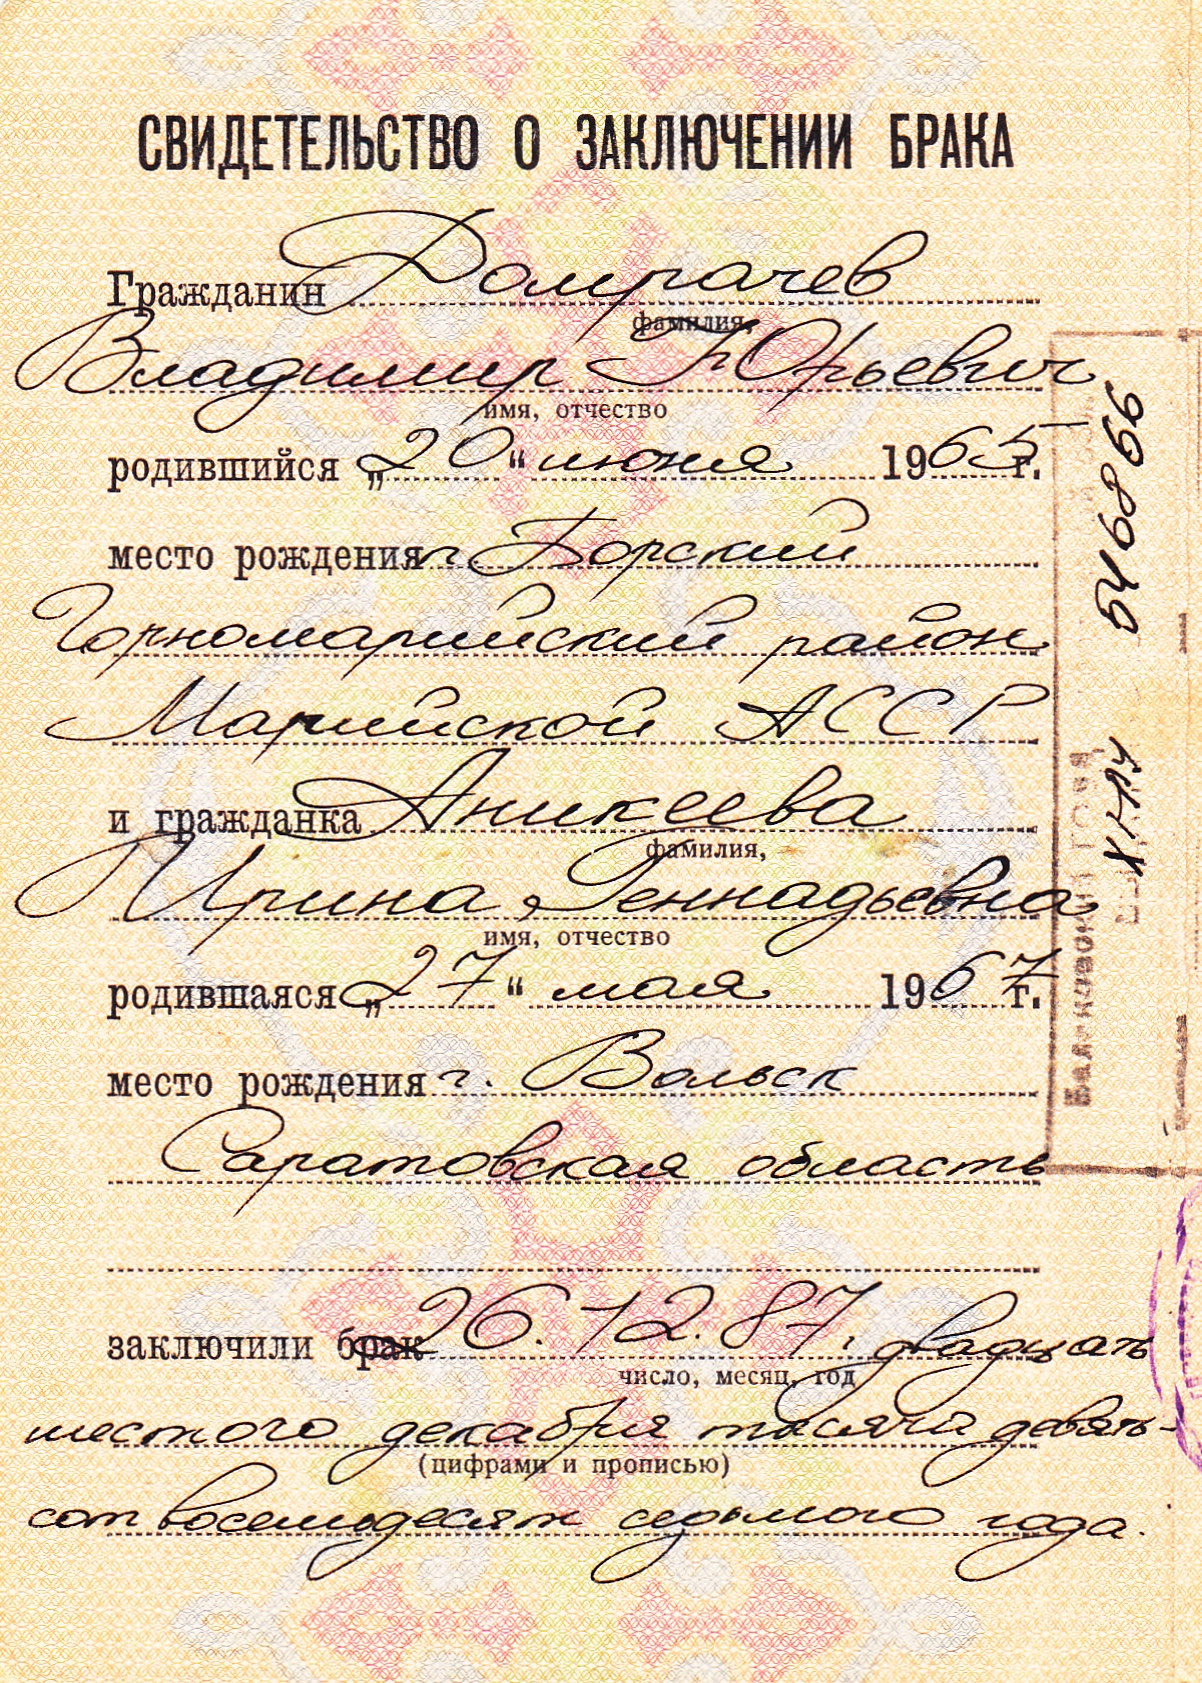 СВИДЕТЕЛЬСТВО О ЗАКЛЮЧЕНИИ БРАКА
Гражданин Домрачев
фамилия,
Владимир Юрьевич
имя, отчество
родившийся „20“ июня 1965 г.
место рождения г. Борский
Горномарийский район
Марийской АССР
и гражданка Аникеева
фамилия,
Ирина Геннадьевна
имя, отчество
родившаяся „27“ мая 1967 г.
место рождения г. Вольск
Саратовская область
заключили брак 26.12.87. двадцать
число, месяц, год
шестого декабря тысяча девять-
(цифрами и прописью)
сот восемьдесят седьмого года.
546866